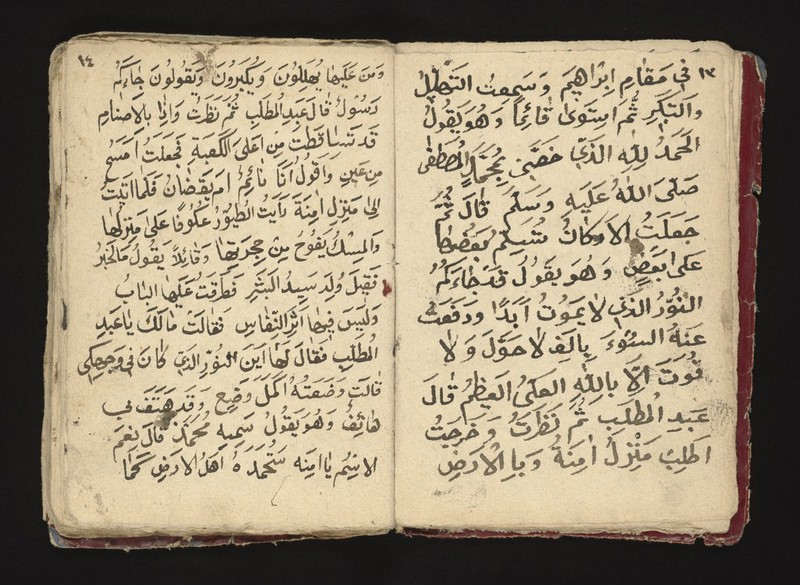 ١٣
في مقام ابراهيم وسمعت التهليل
والتكبير ثم استوى قائما وهو يقول
الحمد لله الذي خصني بمحمد المصطفى
صلى الله عليه وسلم قال ثم
جعلت الاركان تسلم بعضها
على بعض وهو يقول قد جاءكم
النور الذي لا يموت ابدا ودفعت
عنه السوء بالف لا حول ولا
قوت الا بالله العلي العظيم قال
عبد المطلب ثم نظرت وخرجت
اطلب منزل امنة وبا الارض
١٤
ومن عليها يهللون ويكبرون ويقولون جاءكم
رسول قال عبد المطلب ثم نظرت واذا بالاصنام
قد تساقطت من اعلى الكعبة فجعلت امسح
من عين واقول انا نائم ام يقضان فلما اتيت
الى منزل امنة رايت الطيور عكوفا على منزلها
والمسك يفوح من حجرتها وقائلا يقول ما الخبر
فقيل ولد سيد البشر فطرقت عليها الباب
وليس فيها اثر النفاس فقالت مالك يا عبد
المطلب فقال لها اين النور الذي كان في وجهكي
قالت وضعته اكمل وضع وقد هتف بي
هاتف وهو يقول سميه محمد قال نعم
الاسم يا امنه ستحمده اهل الارض كما